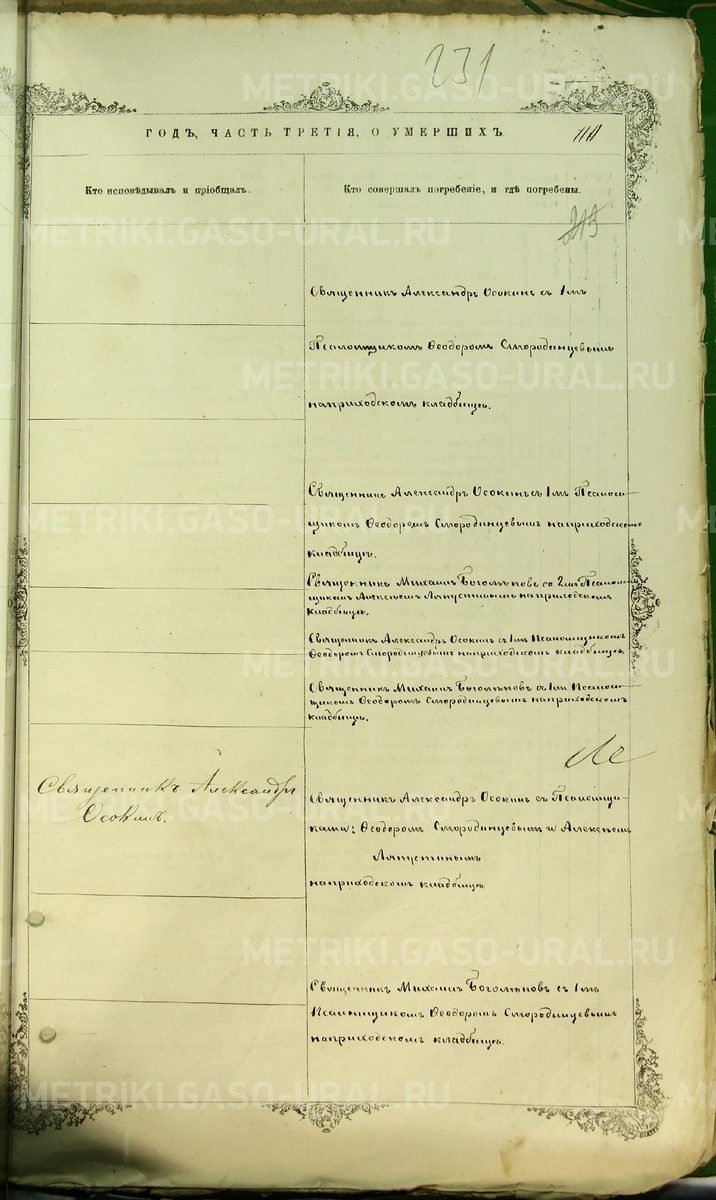 231
ГОДЪ, ЧАСТЬ ТРЕТІЯ, О УМЕРШИХЪ.
Кто исповѣдывалъ и пріобщалъ.
Кто совершалъ погребеніе, и гдѣ погребены.
Священникъ Александръ Осокинъ съ 1мъ
Псаломщикомъ Ѳеодоромъ Смородинцевымъ
на приходскомъ кладбищѣ.
Священникъ Александръ Осокинъ съ 1мъ Псалом-
щикомъ Ѳеодоромъ Смородинцевымъ на приходскомъ
кладбищѣ.
Священникъ Михаилъ Боголѣповъ со 2мъ Псалом-
щикомъ Алексѣемъ Ляпустинымъ на приходскомъ
кладбищѣ.
Священникъ Александръ Осокинъ съ 1мъ Псаломщикомъ
Ѳеодоромъ Смородинцевымъ на приходскомъ кладбищѣ.
Священникъ Михаилъ Боголѣповъ съ 1мъ Псалом-
щикомъ Ѳеодоромъ Смородинцевымъ на приходскомъ
кладбищѣ.
Священникъ Александръ
Осокинъ.
Священникъ Александръ Осокинъ съ Псаломщи-
ками: Ѳеодоромъ Смородинцевымъ и Алексѣемъ
Ляпустинымъ
на приходскомъ кладбищѣ.
Священникъ Михаилъ Боголѣповъ съ 1мъ
Псаломщикомъ Ѳеодоромъ Смородинцевымъ
на приходскомъ кладбищѣ.
METRIKI.GASO-URAL.RU